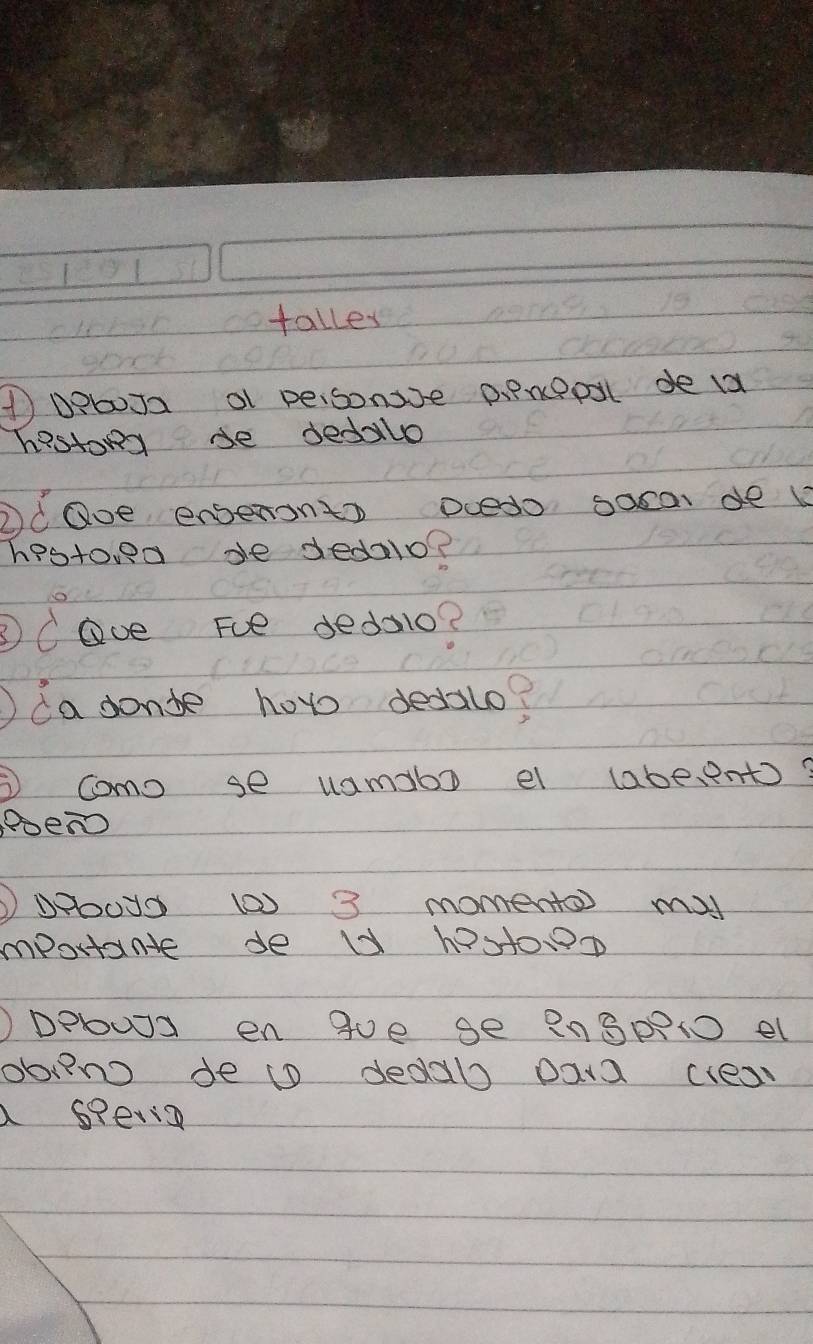 taller
① Debuja al personaje prencepal de la
hestorea de dedalo
② ¿Que ensenansa puedo sacar de l
hestorea de dedalo?
¿Que Fue dedalo?
¿a donde hoyo dedalo?
Como se llamaba el laberento
eseño
Debuja los 3 momentos mas
mportante de la hestorea
Debuja en que se enspero el
obreno de dedalo para crear
a sierra